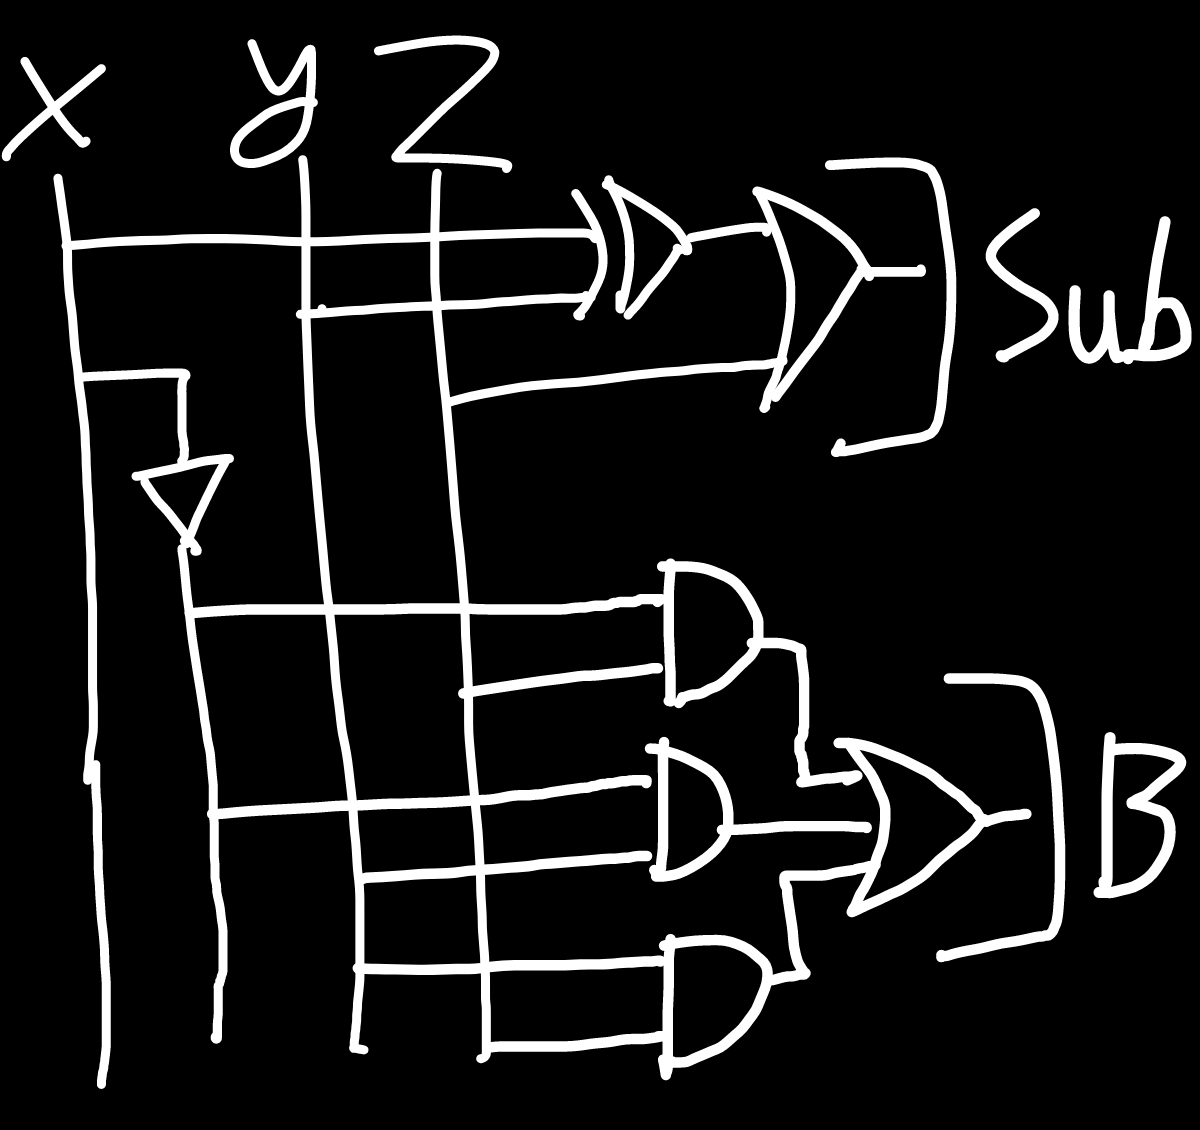 x y Z
Sub
B